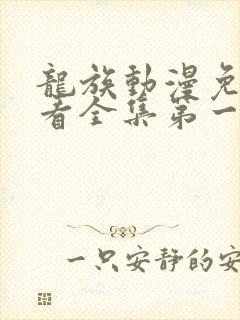 龍族動漫免
看全集第一
一只安靜的安